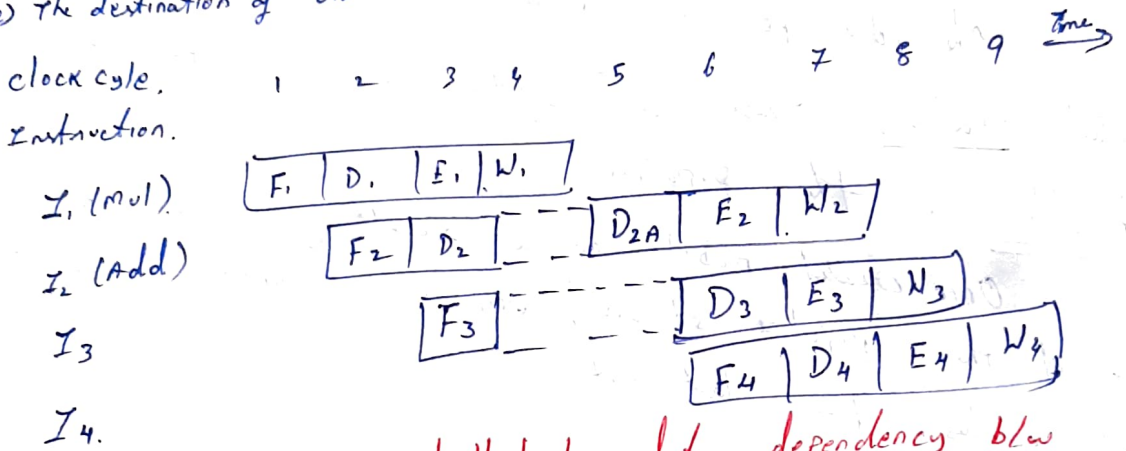 ) The destination of
clock cyle. 1 2 3 4 5 6 7 8 9 Time
Instruction.
I1 (Mul) F1 D1 E1 W1
I2 (Add) F2 D2 D2A E2 W2
I3 F3 D3 E3 W3
I4. F4 D4 E4 W4
dependency b/w